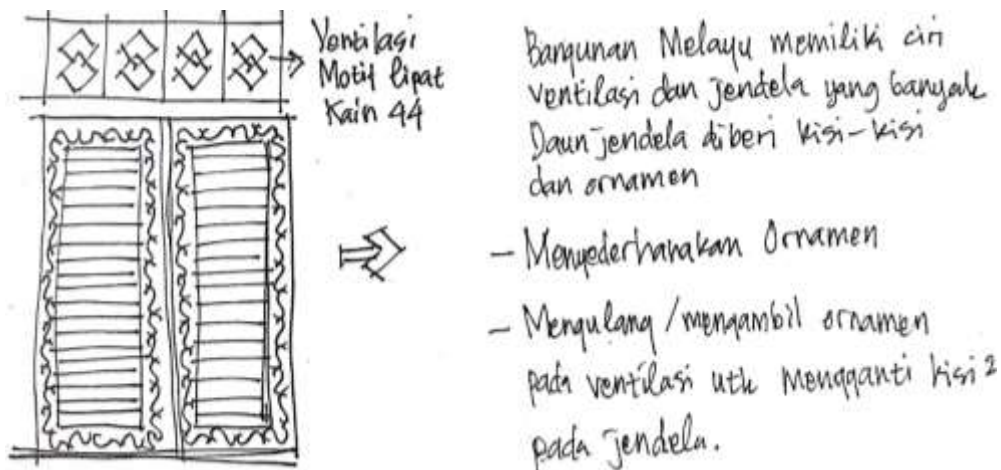 Ventilasi
Motif lipat
Kain 44
Bangunan Melayu memiliki ciri
ventilasi dan jendela yang banyak
Daun jendela diberi kisi-kisi
dan ornamen
- Menyederhanakan Ornamen
- Mengulang/mengambil ornamen
pada ventilasi utk mengganti kisi²
pada jendela.